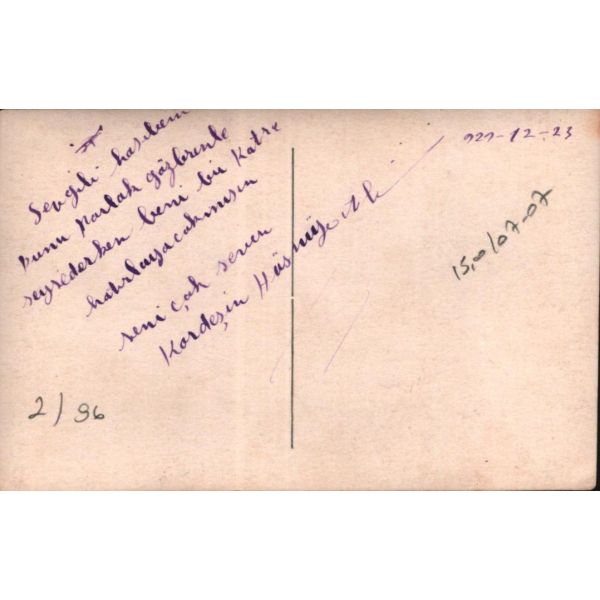 Sevgili hasibem
Bunu parlak gözlerenle
seyrederken beni bir katre
hatırlayacakmısın
seni çok seven
Kardeşin Hüsnüye Ali
929-12-23
15,0/07-07
2/96